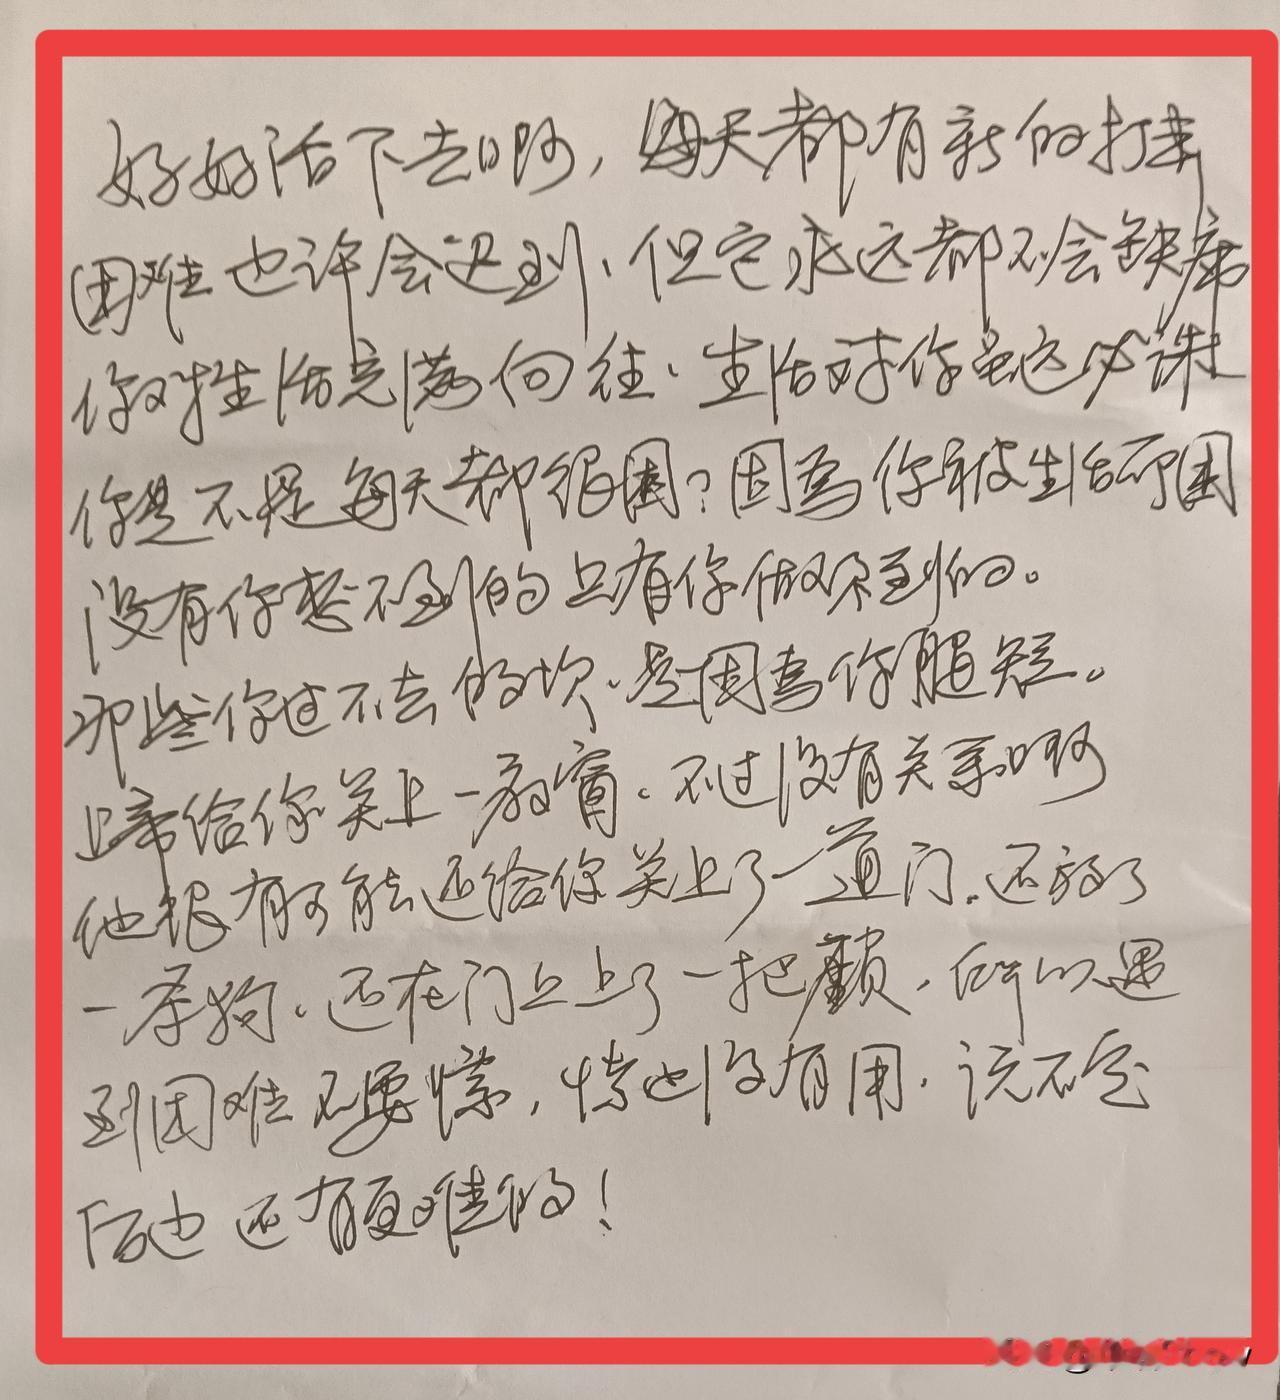 好好活下去啊，每天都有新的打击
困难也许会迟到、但它永远都不会缺席
你对生活充满向往、生活对你虽远必诛
你是不是每天都很困？因为你被生活所困
没有你想不到的只有你做不到的。
那些你过不去的坎、是因为你腿短。
上帝给你关上一扇窗、不过没有关系啊
他很有可能还给你关上了一道门、还放了
一条狗、还在门上上了一把锁、所以遇
到困难不要慌，慌也没有用、说不定
后边还有更难的！